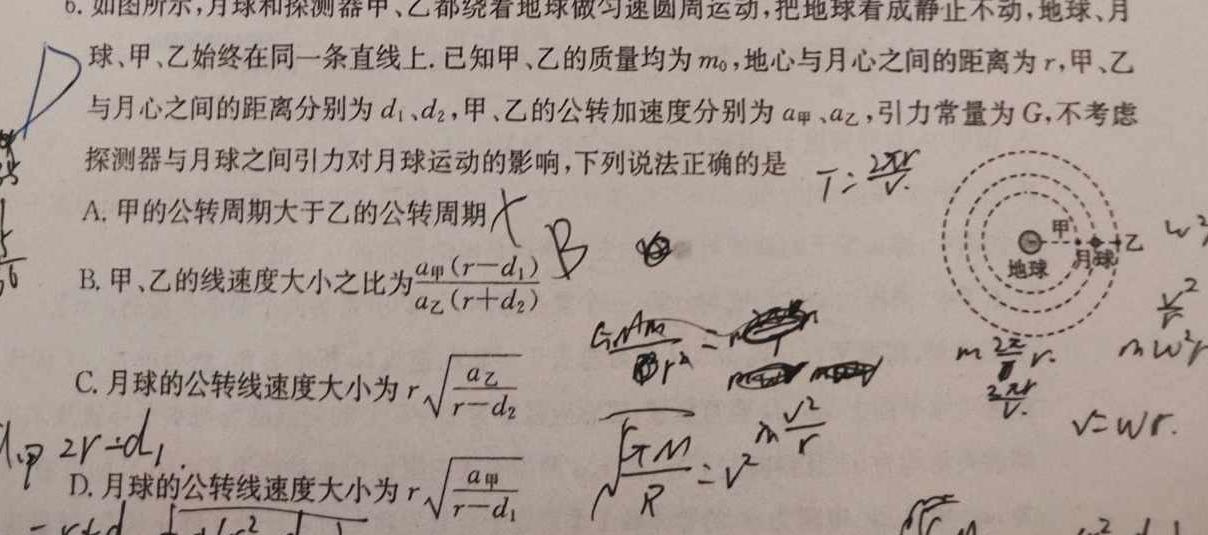 6. 如图所示,月球和探测器甲、乙都绕着地球做匀速圆周运动,把地球看成静止不动,地球、月
球、甲、乙始终在同一条直线上.已知甲、乙的质量均为m₀,地心与月心之间的距离为r,甲、乙
与月心之间的距离分别为d₁、d₂,甲、乙的公转加速度分别为a甲、a乙,引力常量为G,不考虑
探测器与月球之间引力对月球运动的影响,下列说法正确的是
T = 2πr/v.
A. 甲的公转周期大于乙的公转周期
B
B. 甲、乙的线速度大小之比为a甲(r-d₁)/a乙(r+d₂)
甲
乙
月球
地球
w²
v²/r
mw²r
m 2π r.
2πr/v.
v=wr.
GMm/r² =
m v²/r
C. 月球的公转线速度大小为 r√(a乙/(r-d₂))
√(GM/R) = v²
2r-d₁.
D. 月球的公转线速度大小为 r√(a甲/(r-d₁))